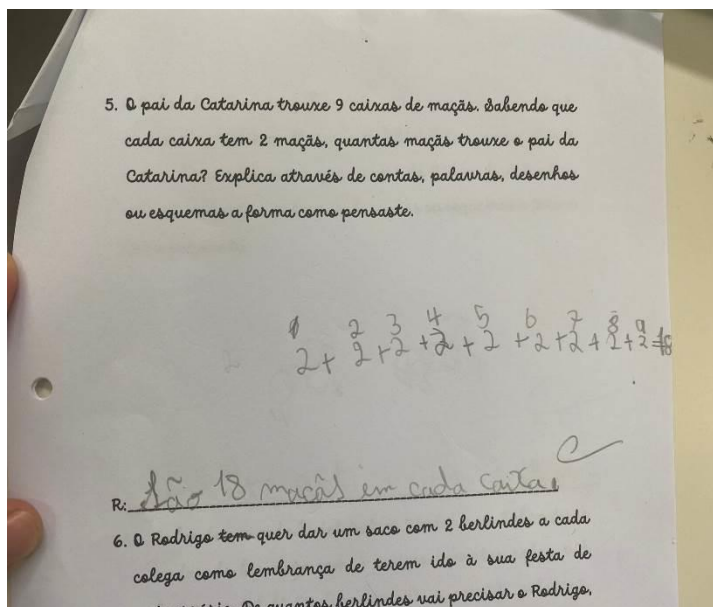 5. O pai da Catarina trouxe 9 caixas de maçãs. Sabendo que
cada caixa tem 2 maçãs, quantas maçãs trouxe o pai da
Catarina? Explica através de contas, palavras, desenhos
ou esquemas a forma como pensaste.
1 2 3 4 5 6 7 8 9
2+2+2+2+2+2+2+2+2=18
R: São 18 maçãs em cada caixa.
6. O Rodrigo tem quer dar um saco com 2 berlindes a cada
colega como lembrança de terem ido à sua festa de
De quantos berlindes vai precisar o Rodrigo,